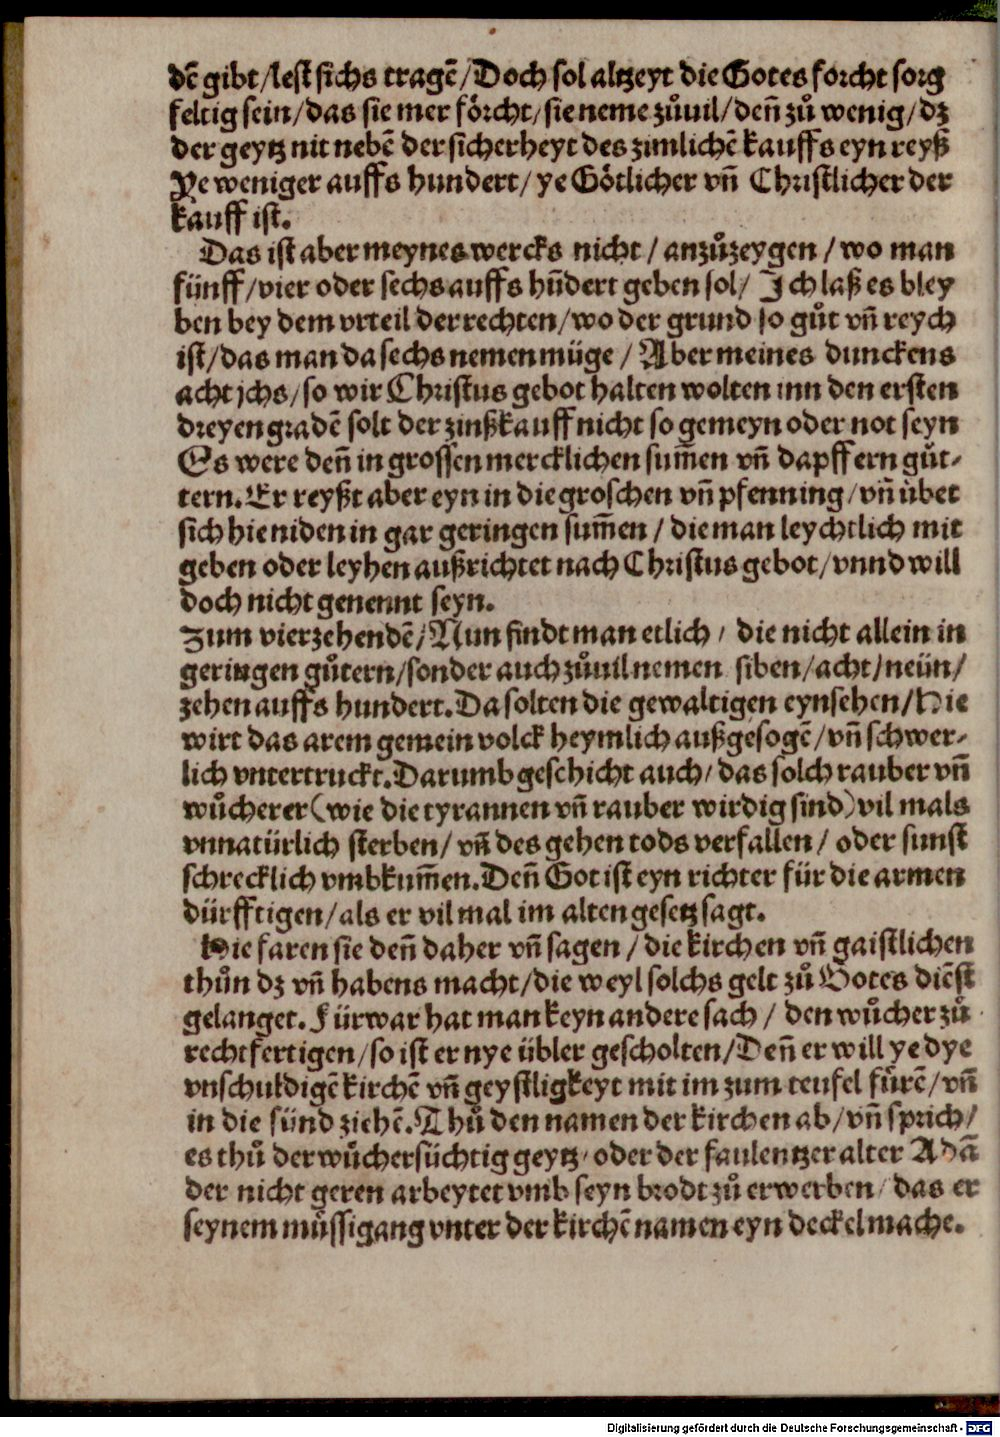 dẽ gibt/lest sichs tragẽ/Doch sol altzeyt die Gotes forcht sorg
feltig sein/das sie mer foͤrcht/sie neme zůuil/deñ zů wenig/dz
der geytz nit nebẽ der sicherheyt des zimlichẽ kauffs eyn reyß
Ye weniger auffs hundert/ye Goͤtlicher vñ Christlicher der
kauff ist.
Das ist aber meynes wercks nicht/anzůzeygen/wo man
fünff/vier oder sechs auffs hũdert geben sol/Ich laß es bley
ben bey dem vrteil der rechten/wo der grund so gůt vñ reych
ist/das man da sechs nemen müge/Aber meines dunckens
acht jchs/so wir Christus gebot halten wolten inn den ersten
dreyen gradẽ solt der zinßkauff nicht so gemeyn oder not seyn
Es were deñ in grossen mercklichen sum̃en vñ dapffern guͤt-
tern. Er reyßt aber eyn in die groschen vñ pfenning/vñ uͤbet
sich hie niden in gar geringen sum̃en/die man leychtlich mit
geben oder leyhen außrichtet nach Christus gebot/vnnd will
doch nicht genennt seyn.
Zum vierzehendẽ/Nun findt man etlich/die nicht allein in
geringen guͤtern/sonder auch zůuil nemen siben/acht/neün/
zehen auffs hundert. Da solten die gewaltigen eynsehen/Hie
wirt das arem gemein volck heymlich außgesogẽ/vñ schwer-
lich vntertruckt. Darumb geschicht auch/das solch rauber vñ
wůcherer(wie die tyrannen vñ rauber wirdig sind)vil mals
vnnatürlich sterben/vñ des gehen tods verfallen/oder sunst
schrecklich vmbkum̃en. Deñ Got ist eyn richter für die armen
dürfftigen/als er vil mal im alten gesetz sagt.
Hie faren sie deñ daher vñ sagen/die kirchen vñ gaistlichen
thůn dz vñ habens macht/die weyl solchs gelt zů Gotes diẽst
gelanget. Fürwar hat man keyn andere sach/den wůcher zů
rechtfertigen/so ist er nye übler gescholten/Deñ er will ye dye
vnschuldigẽ kirchẽ vñ geystligkeyt mit im zum teufel fuͤrẽ/vñ
in die sünd ziehẽ. Thů den namen der kirchen ab/vñ sprich/
es thů der wůchersüchtig geytz/oder der faulentzer alter Adã
der nicht geren arbeytet vmb seyn brodt zů erwerben/das er
seynem muͤssigang vnter der kirchẽ namen eyn deckel mache.
Digitalisierung gefördert durch die Deutsche Forschungsgemeinschaft - DFG